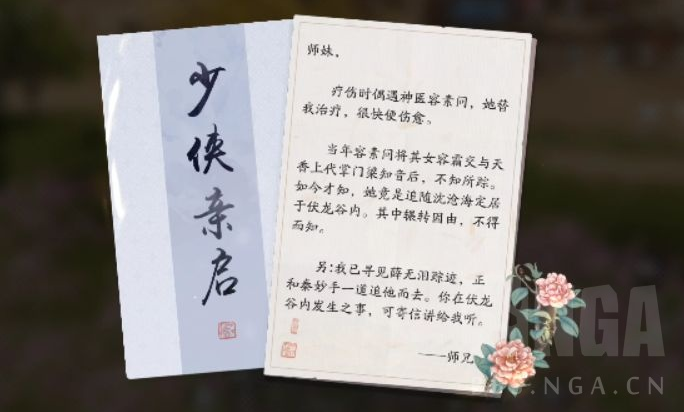 少侠亲启
师妹，
疗伤时偶遇神医容素问，她替
我治疗，很快便伤愈。
当年容素问将其女容霸交与天
香上代掌门梁知音后，不知所踪。
如今才知，她竟是追随沈沧海定居
于伏龙谷内。其中辗转因由，不得
而知。
另：我已寻见薛无泪踪迹，正
和秦妙手一道追他而去。你在伏龙
谷内发生之事，可寄信讲给我听。
——师兄
NGA
NGA.CN